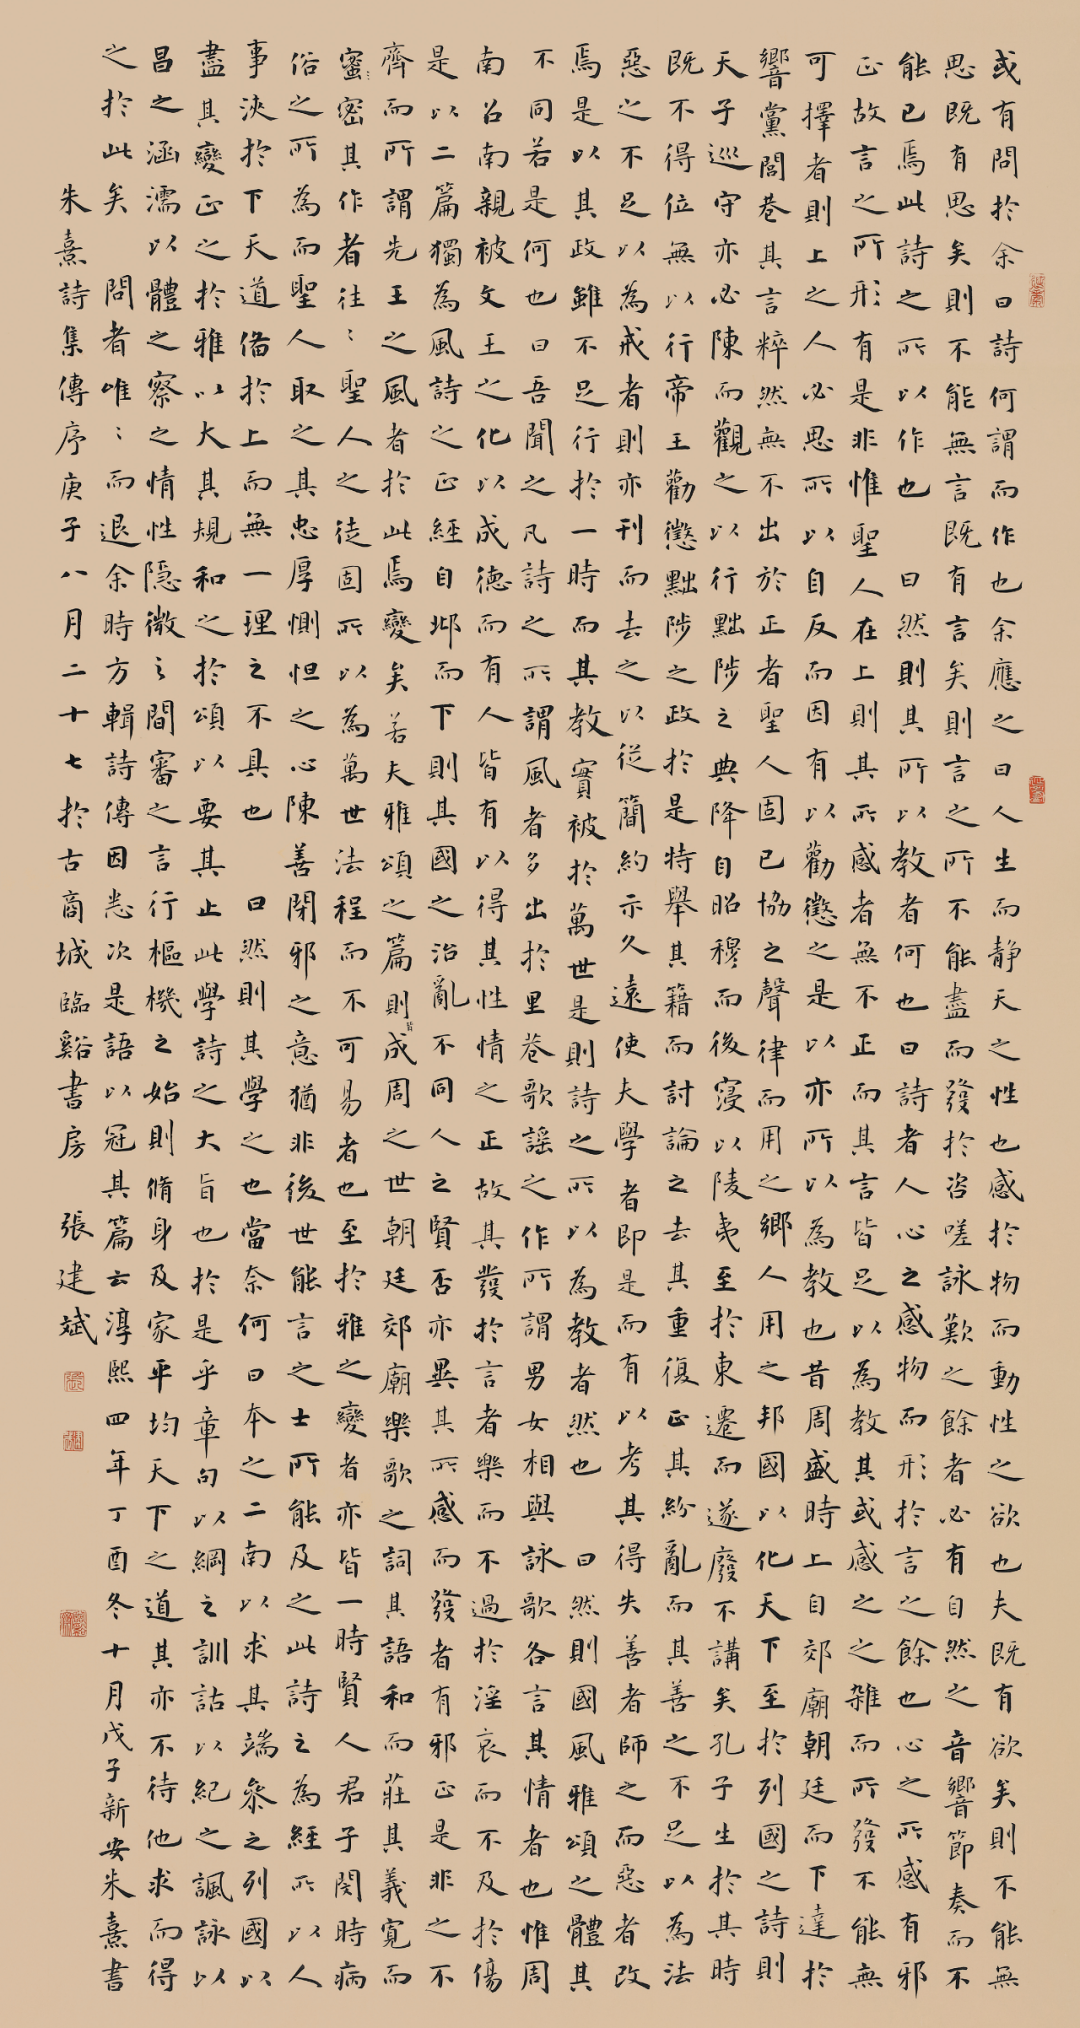 或有問於余曰詩何謂而作也余應之曰人生而静天之性也感於物而動性之欲也夫既有欲矣則不能無
思既有思矣則不能無言既有言矣則言之所不能盡而發於咨嗟詠歎之餘者必有自然之音響節奏而不
能已焉此詩之所以作也 曰然則其所以教者何也曰詩者人心之感物而形於言之餘也心之所感有邪
正故言之所形有是非惟聖人在上則其所感者無不正而其言皆足以為教其或感之之雜而所發不能無
可擇者則上之人必思所以自反而因有以勸懲之是以亦所以為教也昔周盛時上自郊廟朝廷而下達於
響黨閭巷其言粹然無不出於正者聖人固已協之聲律而用之鄉人用之邦國以化天下至於列國之詩則
天子巡守亦必陳而觀之以行黜陟之典降自昭穆而後寖以陵夷至於東遷而遂廢不講矣孔子生於其時
既不得位無以行帝王勸懲黜陟之政於是特舉其籍而討論之去其重復正其紛亂而其善之不足以為法
惡之不足以為戒者則亦刊而去之以從簡約示久遠使夫學者即是而有以考其得失善者師之而惡者改
焉是以其政雖不足行於一時而其教實被於萬世是則詩之所以為教者然也 曰然則國風雅頌之體其
不同若是何也曰吾聞之凡詩之所謂風者多出於里巷歌謠之作所謂男女相與詠歌各言其情者也惟周
南召南親被文王之化以成德而有人皆有以得其性情之正故其發於言者樂而不過於淫哀而不及於傷
是以二篇獨為風詩之正經自邶而下則其國之治亂不同人之賢否亦異其所感而發者有邪正是非之不
齊而所謂先王之風者於此焉變矣若夫雅頌之篇則皆成周之世朝廷郊廟樂歌之詞其語和而莊其義寬而
蜜密其作者往〻聖人之徒固所以為萬世法程而不可易者也至於雅之變者亦皆一時賢人君子閔時病
俗之所為而聖人取之其忠厚惻怛之心陳善閉邪之意猶非後世能言之士所能及之此詩之為經所以人
事浹於下天道備於上而無一理之不具也 曰然則其學之也當奈何曰本之二南以求其端參之列國以
盡其變正之於雅以大其規和之於頌以要其止此學詩之大旨也於是乎章句以綱之訓詁以紀之諷詠以
昌之涵濡以體之察之情性隱微之間審之言行樞機之始則脩身及家平均天下之道其亦不待他求而得
之於此矣 問者唯〻而退余時方輯詩傳因悉次是語以冠其篇云淳熙四年丁酉冬十月戊子新安朱熹書
朱熹詩集傳序庚子八月二十七於古商城臨谿書房 張建斌